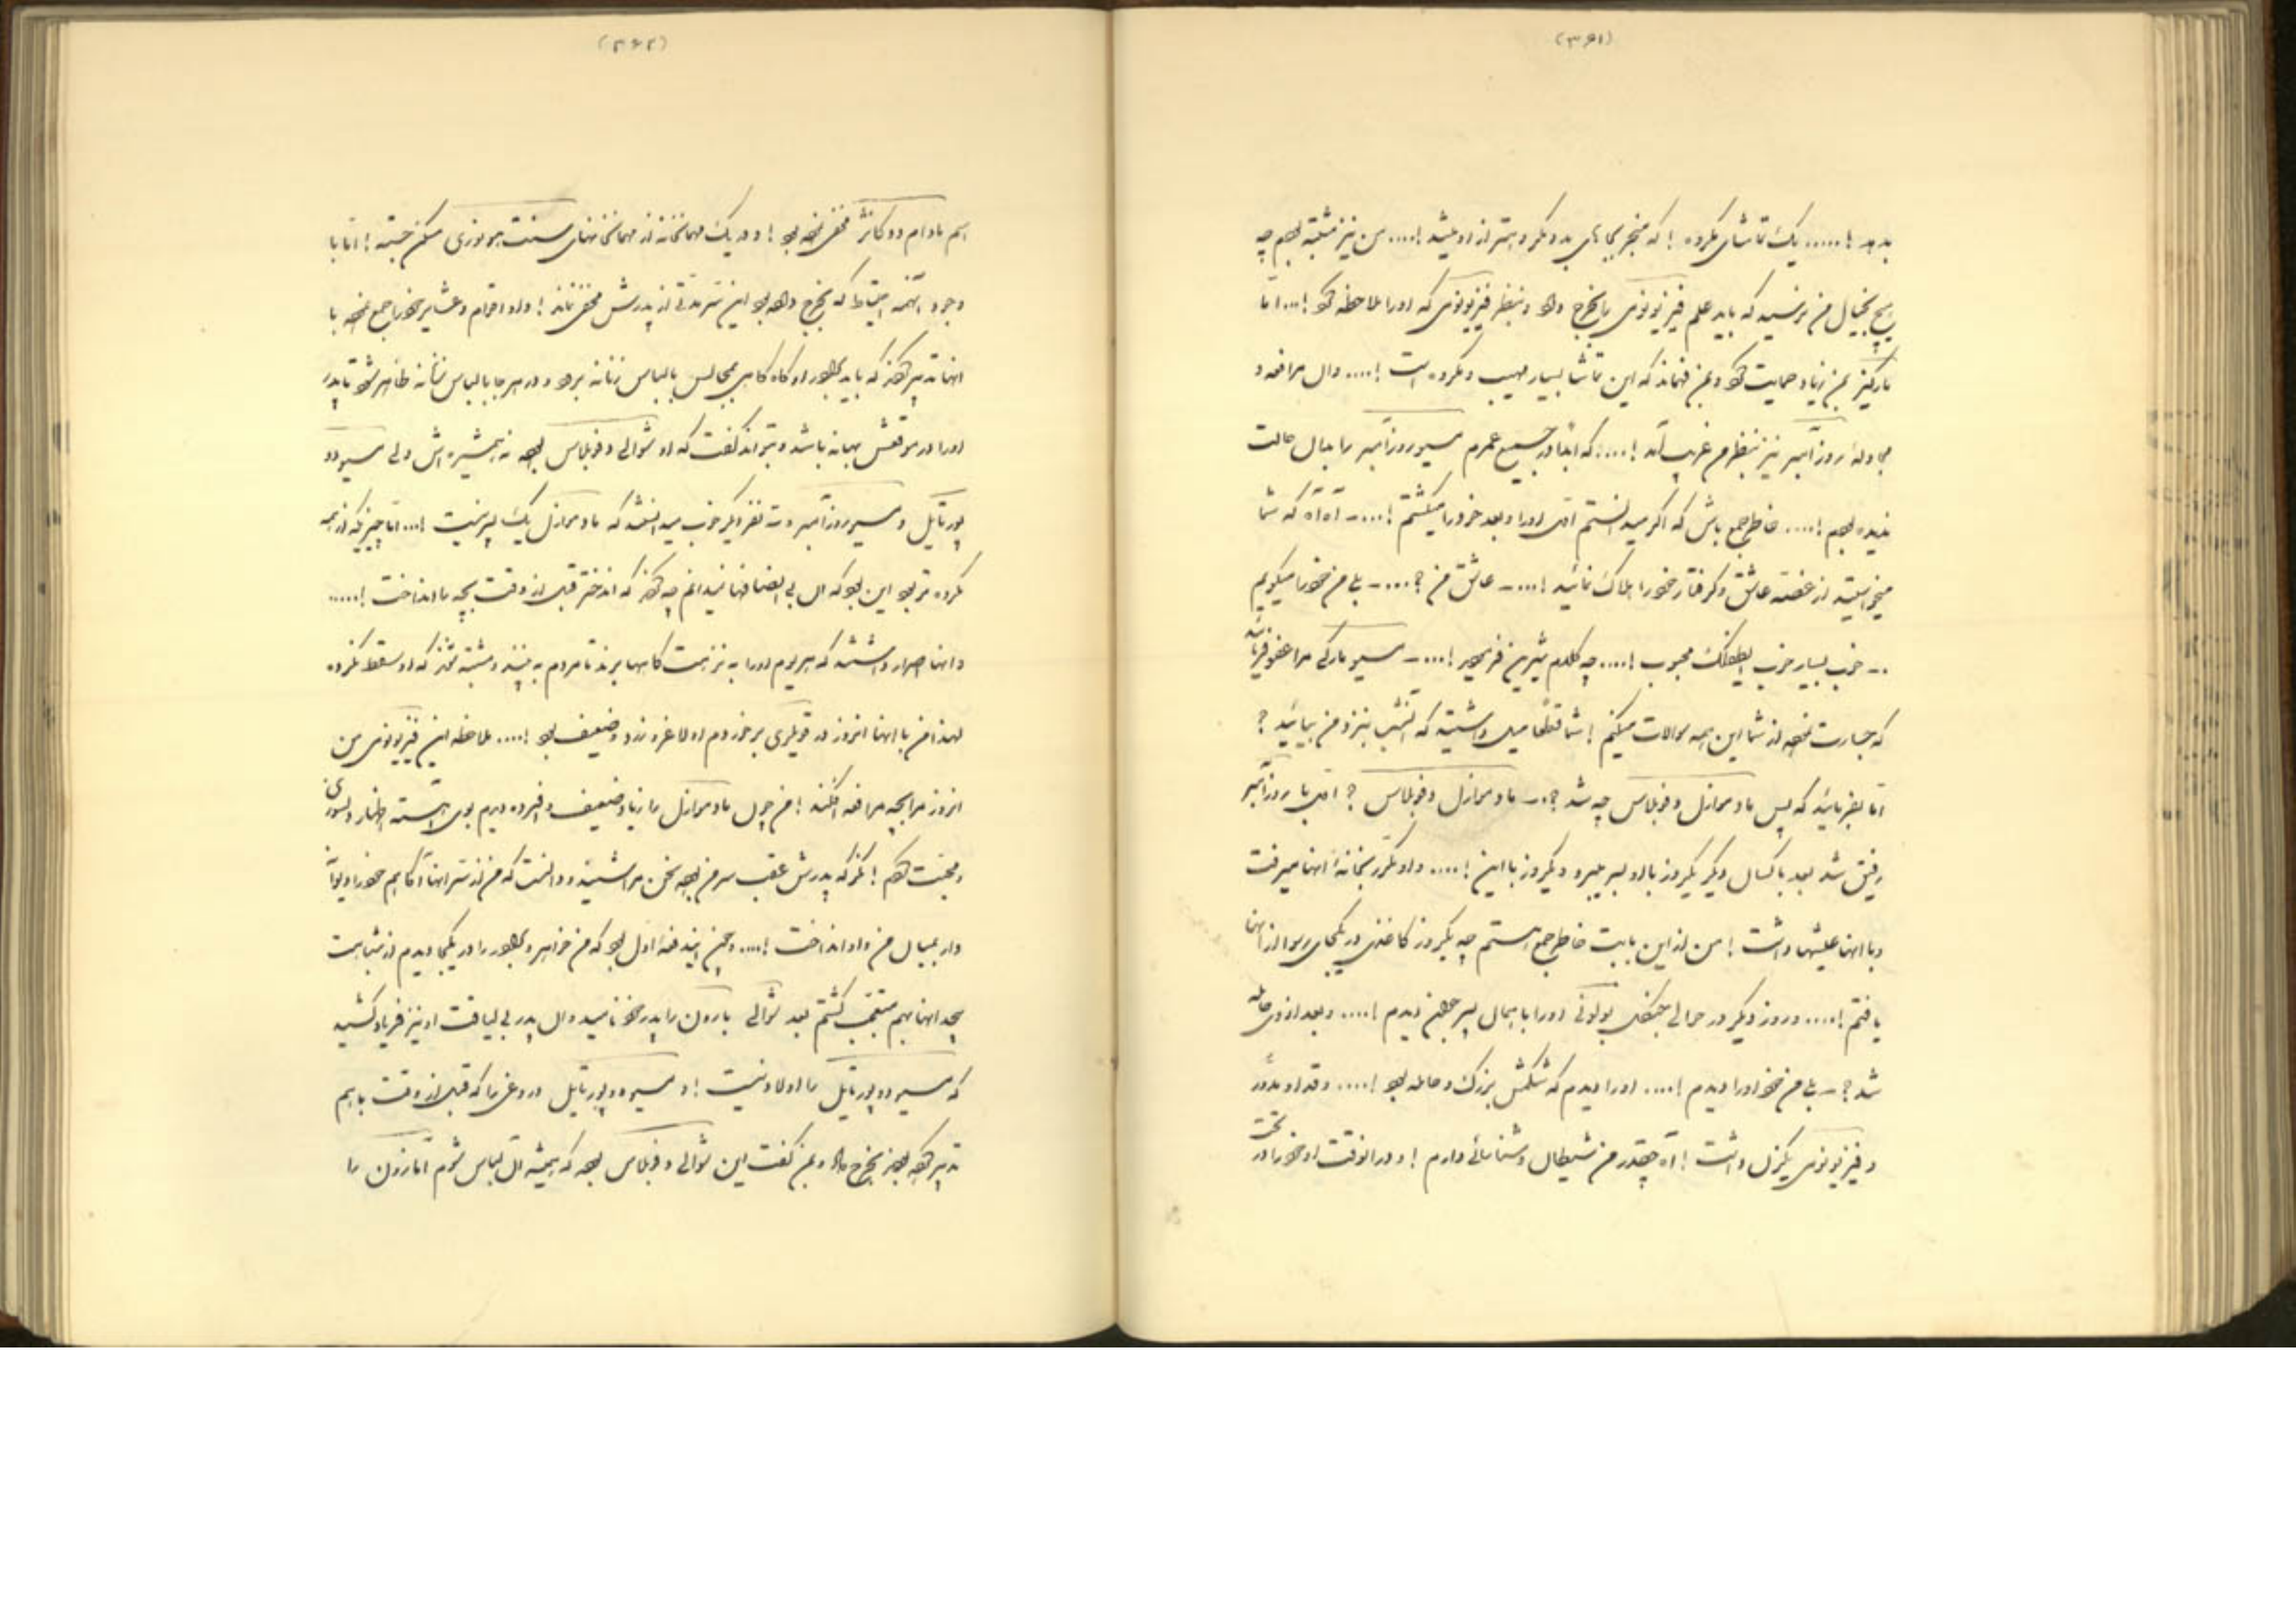 (۳۶۱)
بدهد !..... یک تماشای مکروه ! که منجر بجای بد و مکروه‌تر از او میشد !.... من نیز مشتبه بودم چه
هیچ بخیال من نرسید که باید علم فیزیونومی را بخرج داد و بنظر فیزیونومی که او را ملاحظه نمود !... اما
مارکیز بمن زیاد حمایت نمود و بمن فهماند که این تماشا بسیار مهیب و مکروه است !.... و ان مرافعه و
مجادله روزآمبر نیز بنظر من غریب آمد !.... که ابدا در جمیع عمرم مسیو روزآمبر را بدان حالت
ندیده بودم !.... خاطر جمع باش که اگر میدانستم اول او را و بعد خود را میکشتم !.... - آه آه که شما
میخواستید از غصه عاشق و گرفتار خود را هلاک نمائید !.... - عاشق من ؟.... - بلی من خود را میگویم
.- خوب بسیار خوب محبوب !.... چه کلام شیرین فرمودید !.... - مسیو مارکی مرا عفو فرمائید
که جسارت نموده از شما این همه سوالات میکنم ! شما قطعا میل داشتید که امشب بنزد من بیائید ؟
اما بفرمائید که پس مادموازل دفوبلاس چه شد ؟ .- مادموازل دفوبلاس ؟ اول با روزآمبر
رفیق شد بعد با کسان دیگر یکروز با او بسر میبرد و یکروز با این !.... و او مکرر بخانهٔ انها میرفت
و با انها عیشها داشت ! من از این بابت خاطر جمع هستم چه یکروز کاغذی در یکجای رسوا از انها
یافتم !.... و روز دیگر در حوالی جنگل بولونی او را با همان پسر جوان دیدم !.... و بعد از ان حامله
شد ؟ - بلی من خود او را دیدم !.... او را دیدم که شکمش بزرگ و حامله بود !.... و قد او مدور
و فیزیونومی یکزن داشت ! آه چقدر من شیطان و شناسائی دارم ! و در انوقت او خود را در تحت
(۳۶۲)
اسم مادام دوکانژ مخفی نموده بود ! و در یک مهمانخانه از مهمانخانهای سنت هونوری مسکن جسته ! اما با
وجود انهمه احتیاط که بخرج داده بود این سر مدتی از پدرش مخفی نماند ! و او اقوام و عشایر خود را جمع نموده با
انها تدبیر نمود که باید او گاه گاهی بمجالس با لباس زنانه برود و در هر جا با لباس زنانه ظاهر شود تا پدر
او را در موقعش بهانه باشد و بتواند گفت که او شوالی دفوبلاس بوده نه همشیره‌اش ولی مسیو دو
پورتایل و مسیو روزآمبر و سه نفر دیگر خوب میدانستند که مادموازل یک پسر نیست !... اما چیزیکه از همه
مکروه‌تر بود این بود که ان بی انصافها نمیدانم چه نمودند که اندختر قبل از وقت بچه را انداخت !.....
و انها اصرار داشتند که هر روز او را به نزهت گاهها برند تا مردم به بینند و مشتبه شوند که او سقط نکرده
لهذا من با انها امروز در تویلری برخوردم او لاغر و زرد و ضعیف بود !.... ملاحظه این فیزیونومی من
امروز مرا بچه مرافعه افکند ! من چون مادموازل را زیاد ضعیف و افسرده دیدم بوی آهسته اظهار دلسوزی
و محبت نمودم ! مگر که پدرش عقب سر من بوده سخن مرا شنید و دانست که من از سر انها آگاهم خود را دیوانه
وار بمیان من و او انداخت !.... و چون ایندفعه اول بود که من خواهر و برادر را در یکجا دیدم از شباهت
بیحد انها بهم متعجب گشتم بعد شوالی بارون را پدر خود نامید و ان پدر بی لیاقت او نیز فریاد کشید
که مسیو دو پورتایل را اولاد نیست ! و مسیو دو پورتایل دروغی را که قبل از وقت باهم
تدبیر نموده بودند بخرج داد و بمن گفت این شوالی دفوبلاس بوده که همیشه ان لباس شوم آمازون را